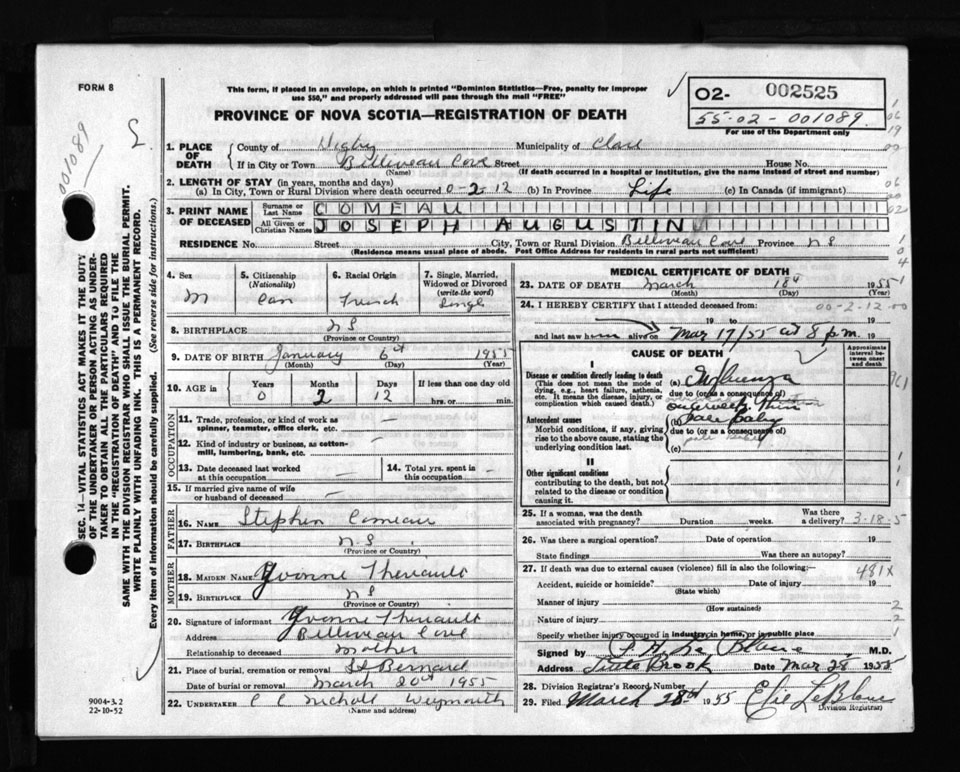 FORM 8
This form, if placed in an envelope, on which is printed "Dominion Statistics—Free, penalty for improper
use $50," and properly addressed will pass through the mail "FREE"
PROVINCE OF NOVA SCOTIA—REGISTRATION OF DEATH
O2- 002525
55-02-001089
For use of the Department only
001089
1. PLACE OF DEATH County of Digby Municipality of Clare
If in City or Town Belliveau Cove Street House No.
(Name) (If death occurred in a hospital or institution, give the name instead of street and number)
2. LENGTH OF STAY (in years, months and days)
(a) In City, Town or Rural Division where death occurred 0-2-12 (b) In Province Life (c) In Canada (if immigrant)
3. PRINT NAME OF DECEASED Surname or Last Name COMEAU
All Given or Christian Names JOSEPH AUGUSTIN
RESIDENCE No. Street City, Town or Rural Division Belliveau Cove Province N S
(Residence means usual place of abode. Post Office Address for residents in rural parts not sufficient)
4. Sex M
5. Citizenship (Nationality) Can
6. Racial Origin French
7. Single, Married, Widowed or Divorced (write the word) Single
8. BIRTHPLACE N S
(Province or Country)
9. DATE OF BIRTH January 6th 1955
(Month) (Day) (Year)
10. AGE in Years 0 Months 2 Days 12 If less than one day old
hrs. or min.
OCCUPATION
11. Trade, profession, or kind of work as spinner, teamster, office clerk, etc. —
12. Kind of industry or business, as cotton-mill, lumbering, bank, etc. —
13. Date deceased last worked at this occupation —
14. Total yrs. spent in this occupation —
15. If married give name of wife or husband of deceased —
FATHER
16. NAME Stephen Comeau
17. BIRTHPLACE N S
(Province or Country)
MOTHER
18. MAIDEN NAME Yvonne Theriault
19. BIRTHPLACE N S
(Province or Country)
20. Signature of informant Yvonne Theriault
Address Belliveau Cove
Relationship to deceased Mother
21. Place of burial, cremation or removal St Bernard
Date of burial or removal March 20th 1955
22. UNDERTAKER C C Nicholl Weymouth
(Name and address)
MEDICAL CERTIFICATE OF DEATH
23. DATE OF DEATH March 18th 1955
(Month) (Day) (Year)
24. I HEREBY CERTIFY that I attended deceased from:
00-2-12-00
19 to 19
and last saw him alive on Mar 17/55 at 8 p.m. 19
CAUSE OF DEATH
Approximate interval between onset and death
I
Disease or condition directly leading to death
(This does not mean the mode of dying, e.g., heart failure, asthenia, etc. It means the disease, injury, or complication which caused death.)
(a) Influenza
due to (or as a consequence of)
Antecedent causes
Morbid conditions, if any, giving rise to the above cause, stating the underlying condition last.
(b) pale baby
due to (or as a consequence of)
(c)
II
Other significant conditions
contributing to the death, but not related to the disease or condition causing it.
25. If a woman, was the death associated with pregnancy? Duration weeks. Was there a delivery? 3-18-5
26. Was there a surgical operation? Date of operation 19
State findings Was there an autopsy?
27. If death was due to external causes (violence) fill in also the following:— 481X
Accident, suicide or homicide? Date of injury 19
(State which)
Manner of injury
(How sustained)
Nature of injury
Specify whether injury occurred in industry, in home, or in public place
Signed by P. H. Le Blanc M.D.
Address Little Brook Date Mar 28 1955
28. Division Registrar's Record Number
29. Filed March 28th 1955 Elie LeBlanc
Division Registrar
SEC. 14—VITAL STATISTICS ACT MAKES IT THE DUTY
OF THE UNDERTAKER OR PERSON ACTING AS UNDER-
TAKER TO OBTAIN ALL THE PARTICULARS REQUIRED
IN THE "REGISTRATION OF DEATH" AND TO FILE THE
SAME WITH THE DIVISION REGISTRAR WHO SHALL ISSUE THE BURIAL PERMIT.
WRITE PLAINLY WITH UNFADING INK. THIS IS A PERMANENT RECORD.
Every item of information should be carefully supplied. (See reverse side for instructions.)
9004-3.2
22-10-52